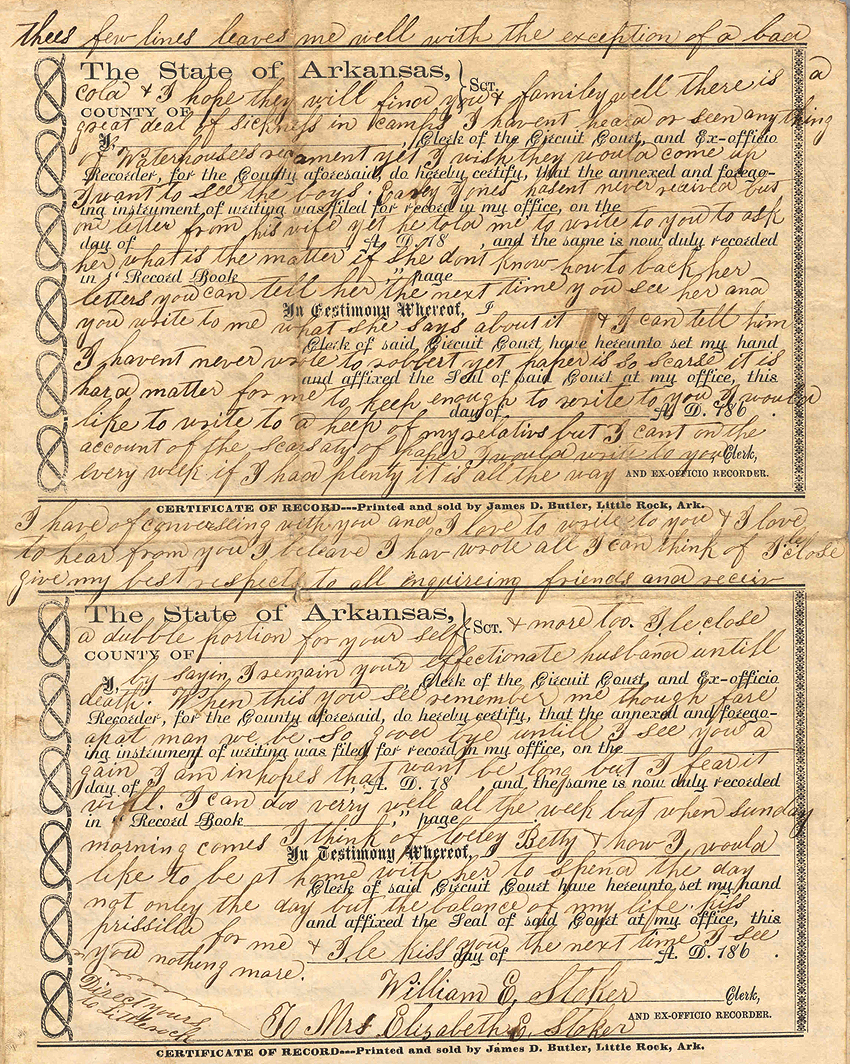 thees few lines leaves me well with the exception of a bad
The State of Arkansas, } Sct.
cold & I hope they will find you & familey well there is a
COUNTY OF
great deal of sickness in camps I havent heard or seen any thing
I, , Clerk of the Circuit Court, and Ex-officio
of Waterhousees regament yet I wish they would come up
Recorder, for the County aforesaid, do hereby certify, that the annexed and forego-
I want to see the boys. Jones hasent never recived but
ing instrument of writing was filed for record in my office, on the
one letter from his wife yet he told me to write to you to ask
day of A. D. 18 , and the same is now duly recorded
her what is the matter if she dont know how to back her
in “Record Book ,” page
letters you can tell her the next time you see her and
In Testimony Whereof, I
you write to me what she says about it & I can tell him
Clerk of said Circuit Court, have hereunto set my hand
I havent never wrote to robbert yet paper is so scarse it is
and affixed the Seal of said Court at my office, this
hard matter for me to keep enough to write to you I would
day of A. D. 186 .
like to write to a heep of my relativs but I cant on the
account of the scarsaty of paper I would write to you
Clerk,
every week if I had plenty it is all the way
AND EX-OFFICIO RECORDER.
CERTIFICATE OF RECORD---Printed and sold by James D. Butler, Little Rock, Ark.
I have of converseing with you and I love to write to you & I love
to hear from you I beleave I hav wrote all I can think of I le close
give my best respects to all enquireing friends and receiv
The State of Arkansas, } Sct.
a dubble portion for your self & more too. I le close
COUNTY OF
by sayin I remain your effectionate husband untill
I, , Clerk of the Circuit Court, and Ex-officio
death. When this you see remember me though fare
Recorder, for the County aforesaid, do hereby certify, that the annexed and forego-
apat man we be. so good bye untill I see you a
ing instrument of writing was filed for record in my office, on the
gain I am in hopes that want be long but I fear it
day of , A. D. 18 and the same is now duly recorded
will. I can doo verry well all the week but when sunday
in “Record Book ,” page
morning comes I think of Betty & how I would
In Testimony Whereof, I
like to be at home with her to spend the day
Clerk of said Circuit Court, have hereunto set my hand
not onley the day but the balance of my life. kiss
and affixed the Seal of said Court at my office, this
prissilla for me & I le kiss you the next time I see
day of A. D. 186 .
you nothing more.
William E, Stoker
Clerk,
Direct yours
to Littlerock
AND EX-OFFICIO RECORDER.
To Mrs Elizabeth E, Stoker
CERTIFICATE OF RECORD---Printed and sold by James D. Butler, Little Rock, Ark.